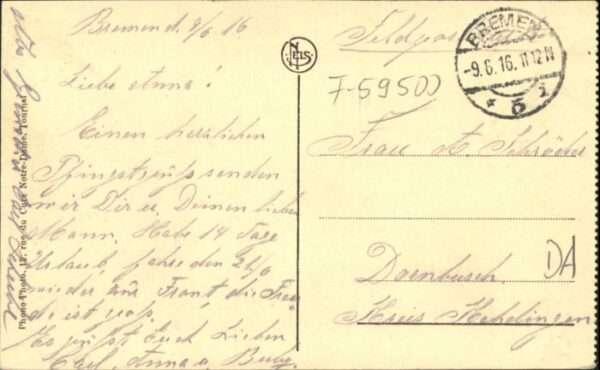 Bremen d. 8/6 16
Liebe Anna!
Einen herzlichen
Pfingstgruß senden
wir Dir u. Deinen lieben
Mann. Habe 14 Tage
Urlaub, fahre den 21/6
wieder zur Front, die Freu
de ist groß.
Es grüßt Euch Lieben
Carl, Anna u.
Photo-Photo., 12, rue du Curé Notre-Dame, Tournai
NELS
Feldpost
BREMEN
-9.6.16. 11-12 N
* 5 i
7-59500
Frau A. Schröder
Dornbusch
DA
Kreis Kehdingen